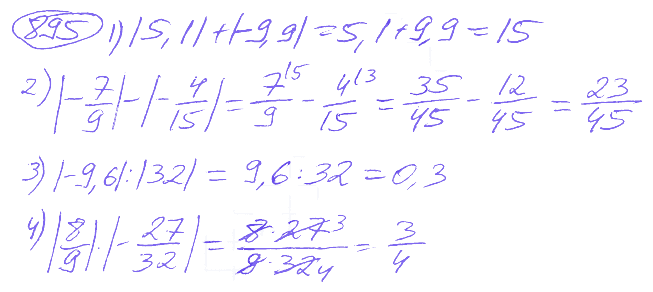 895 1) |5,1|+|-9,9|=5,1+9,9=15
2) |-7/9|-|-4/15|=7^{15}/9-4^{13}/15=35/45-12/45=23/45
3) |-9,6|:|32|=9,6:32=0,3
4) |8/9|·|-27/32|=8·27 3/9·32 4=3/4